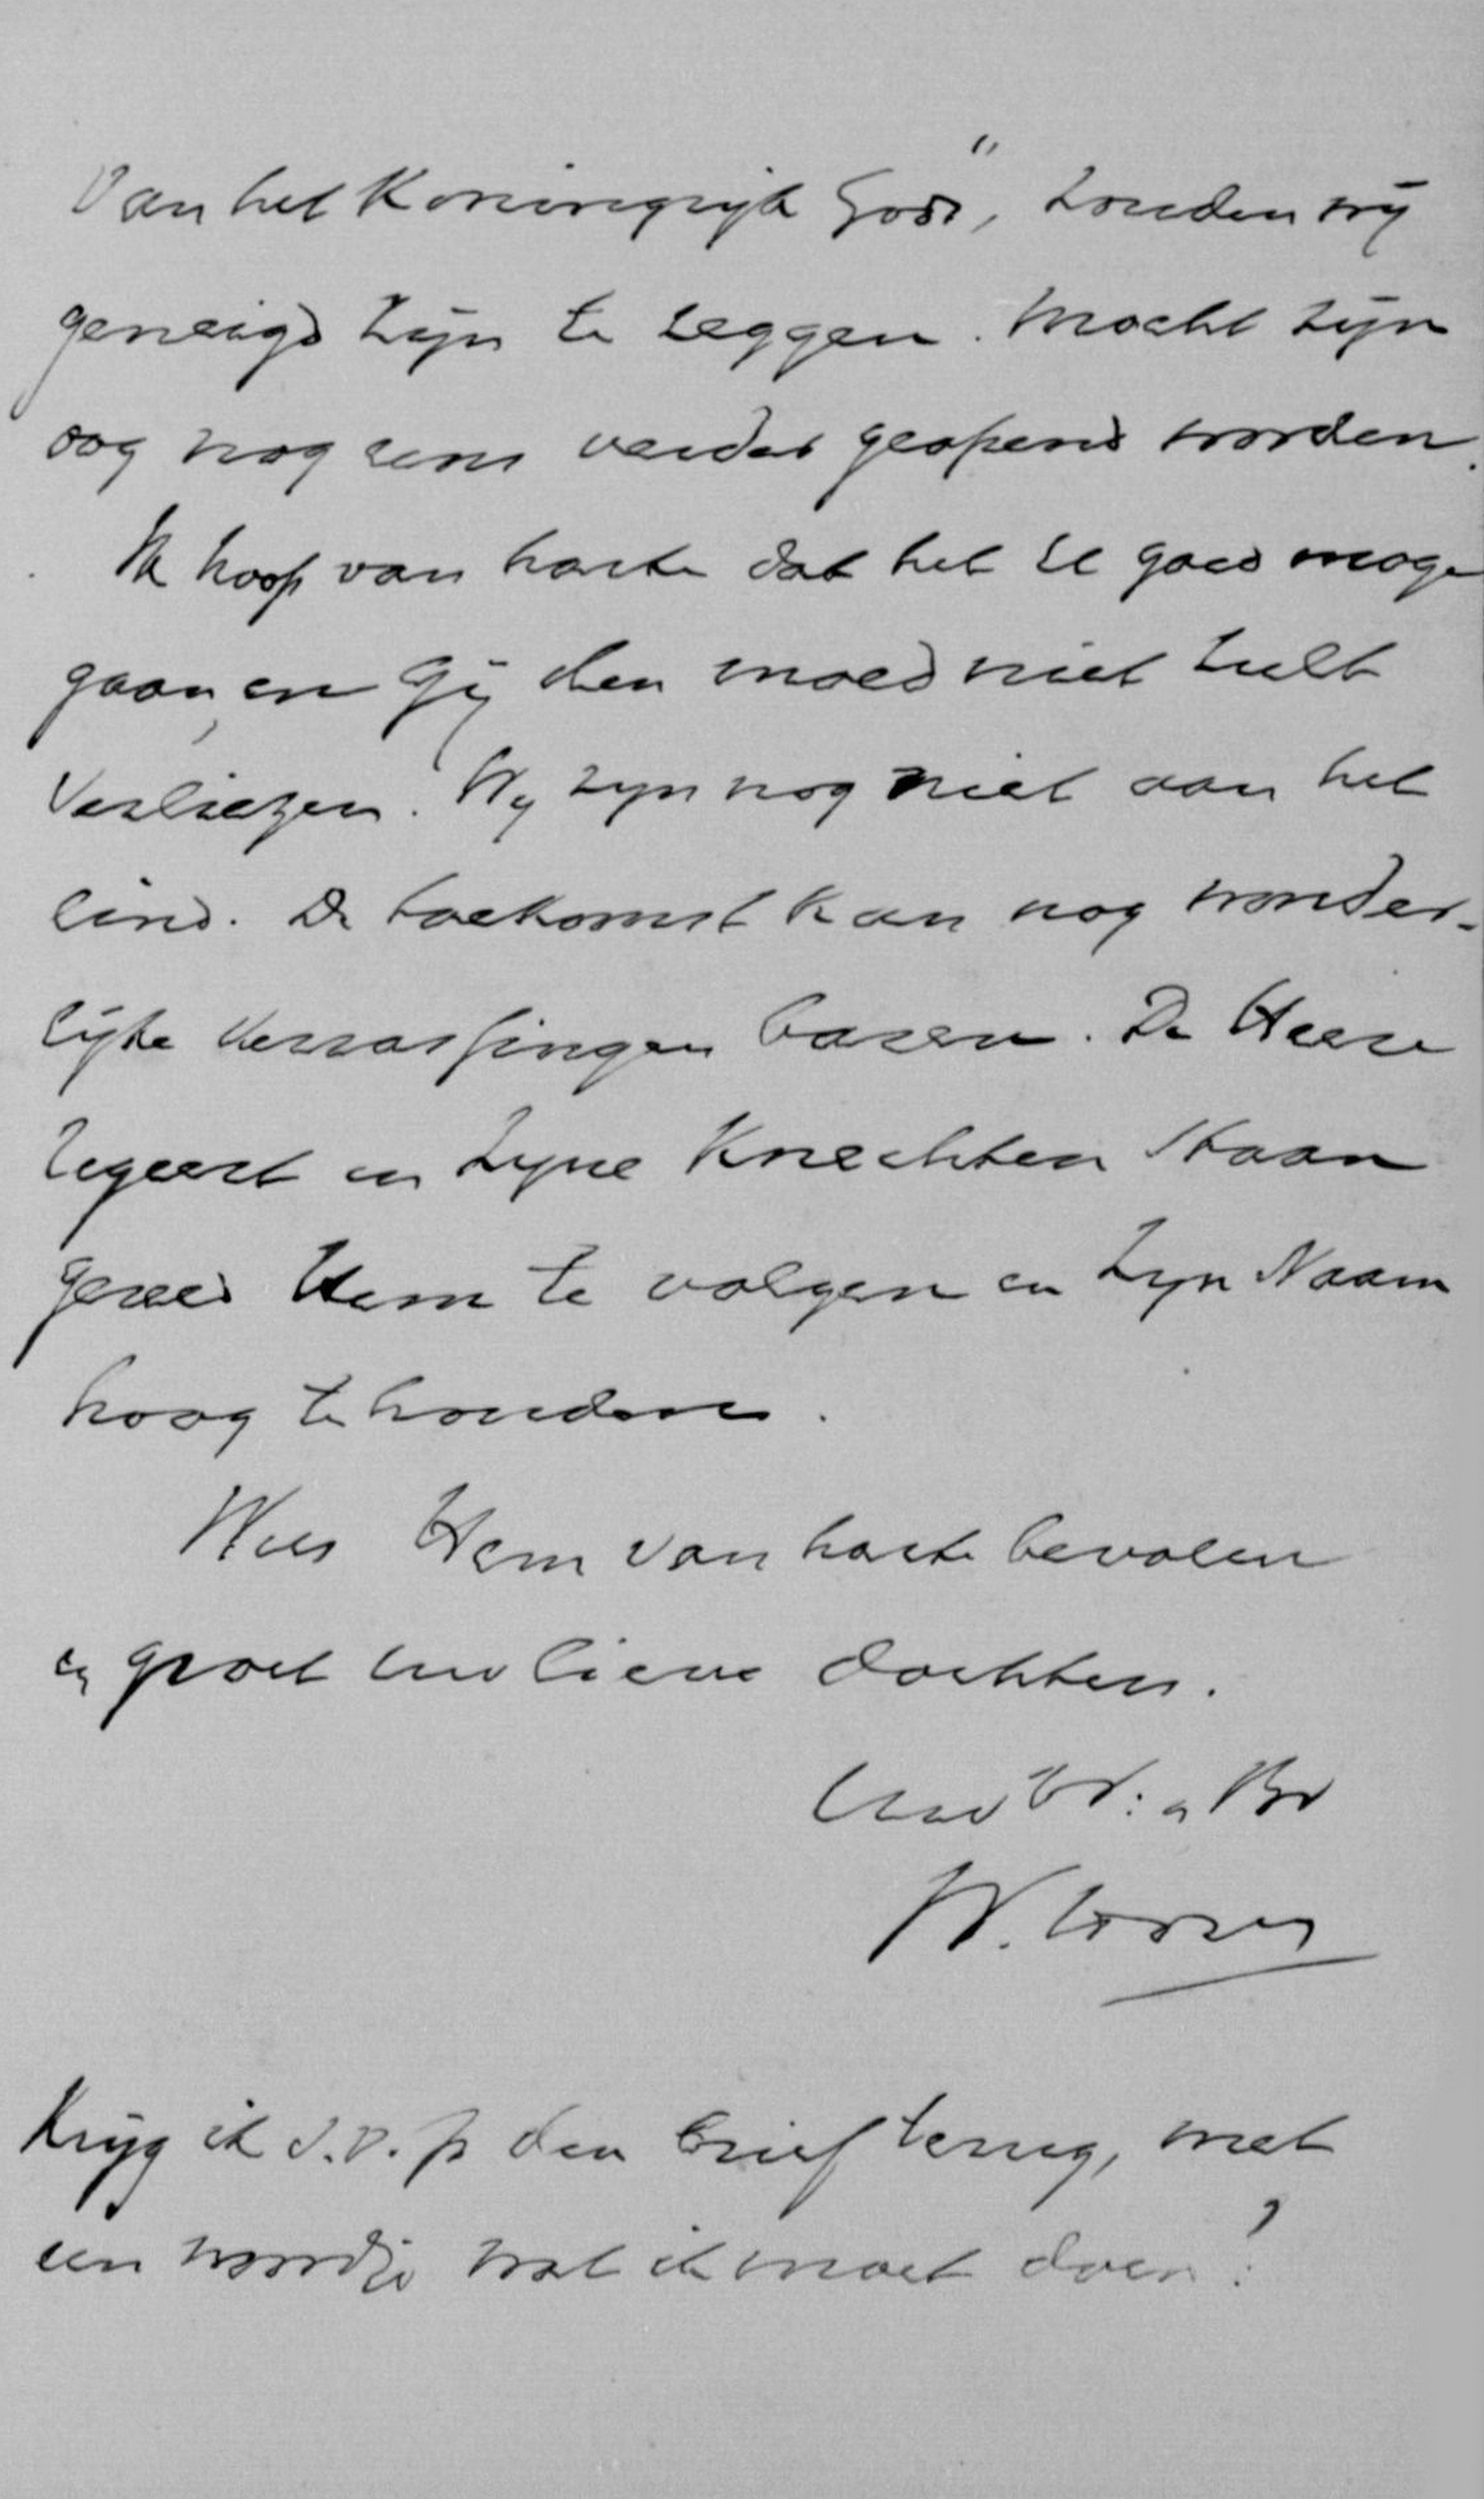 van het Koningrijk Gods", zouden wij
geneigd zijn te zeggen. Mocht zijn
oog nog eens verder geopend worden.
Ik hoop van harte dat het U goed moge
gaan, en Gij den moed niet zult
verliezen. Wy zyn nog niet aan het
eind. De toekomst kan nog wonder-
lijke verrassingen baren. De Heere
regeert en Zyne Knechten staan
gereed Hem te volgen en Zyn Naam
hoog te houden.
Wees Hem van harte bevolen
en groet uw lieve dochters.
Uw Vr: en Br
W.
Krijg ik s.v.p den brief terug, met
een woordje wat ik moet doen?